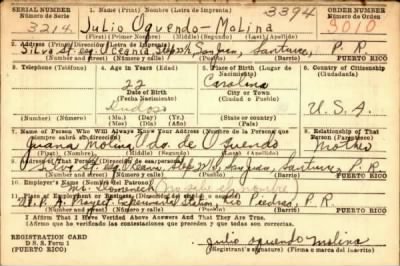 SERIAL NUMBER
Número de Serie
1. Name (Print) Nombre (Letra de Imprenta)
3394
ORDER NUMBER
Número de Orden
3214
Julio Oquendo-Molina
3010
(First) (Nombre) (Middle) (Segundo) (Last) (Apellido)
2. Address (Print) Dirección (Letra de Imprenta)
Silva St. esq Oceania Stop 24, San Juan, Santurce, P. R.
(Number and street) (Número y calle) (Barrio) PUERTO RICO
3. Telephone (Teléfono)
4. Age in Years (Edad)
5. Place of Birth (Lugar de Nacimiento)
6. Country of Citizenship (Ciudadanía)
22
Carolina
Date of Birth
(Fecha Nacimiento)
City or Town
(Ciudad o Pueblo)
U. S. A.
(Mo.) (Day) (Yr.)
(Mes) (Día) (Año)
State or country
7. Name of Person Who Will Always Know Your Address (Nombre de la Persona que siempre sabrá su dirección)
8. Relationship of That Person
Juana Molina Vda. de Oquendo
Mother
(First) (Nombre) (Middle) (Segundo) (Last) (Apellido)
9. Address of That Person
Santurce, P. R.
(Number and street) (Número y calle) (Barrio) PUERTO RICO
10. Employer's Name (Nombre del Patrono)
11. Place of Employment or Business
Experimental Station, Rio Piedras, P. R.
(Number and street) (Número y calle) (Barrio) PUERTO RICO
I Affirm That I Have Verified Above Answers And That They Are True.
(Afirmo que he verificado las contestaciones precedentes y que todas son correctas.)
REGISTRATION CARD
D. S. S. Form 1
(PUERTO RICO)
julio oquendo molina
(Registrant's signature) (Firma o marca del inscrito)